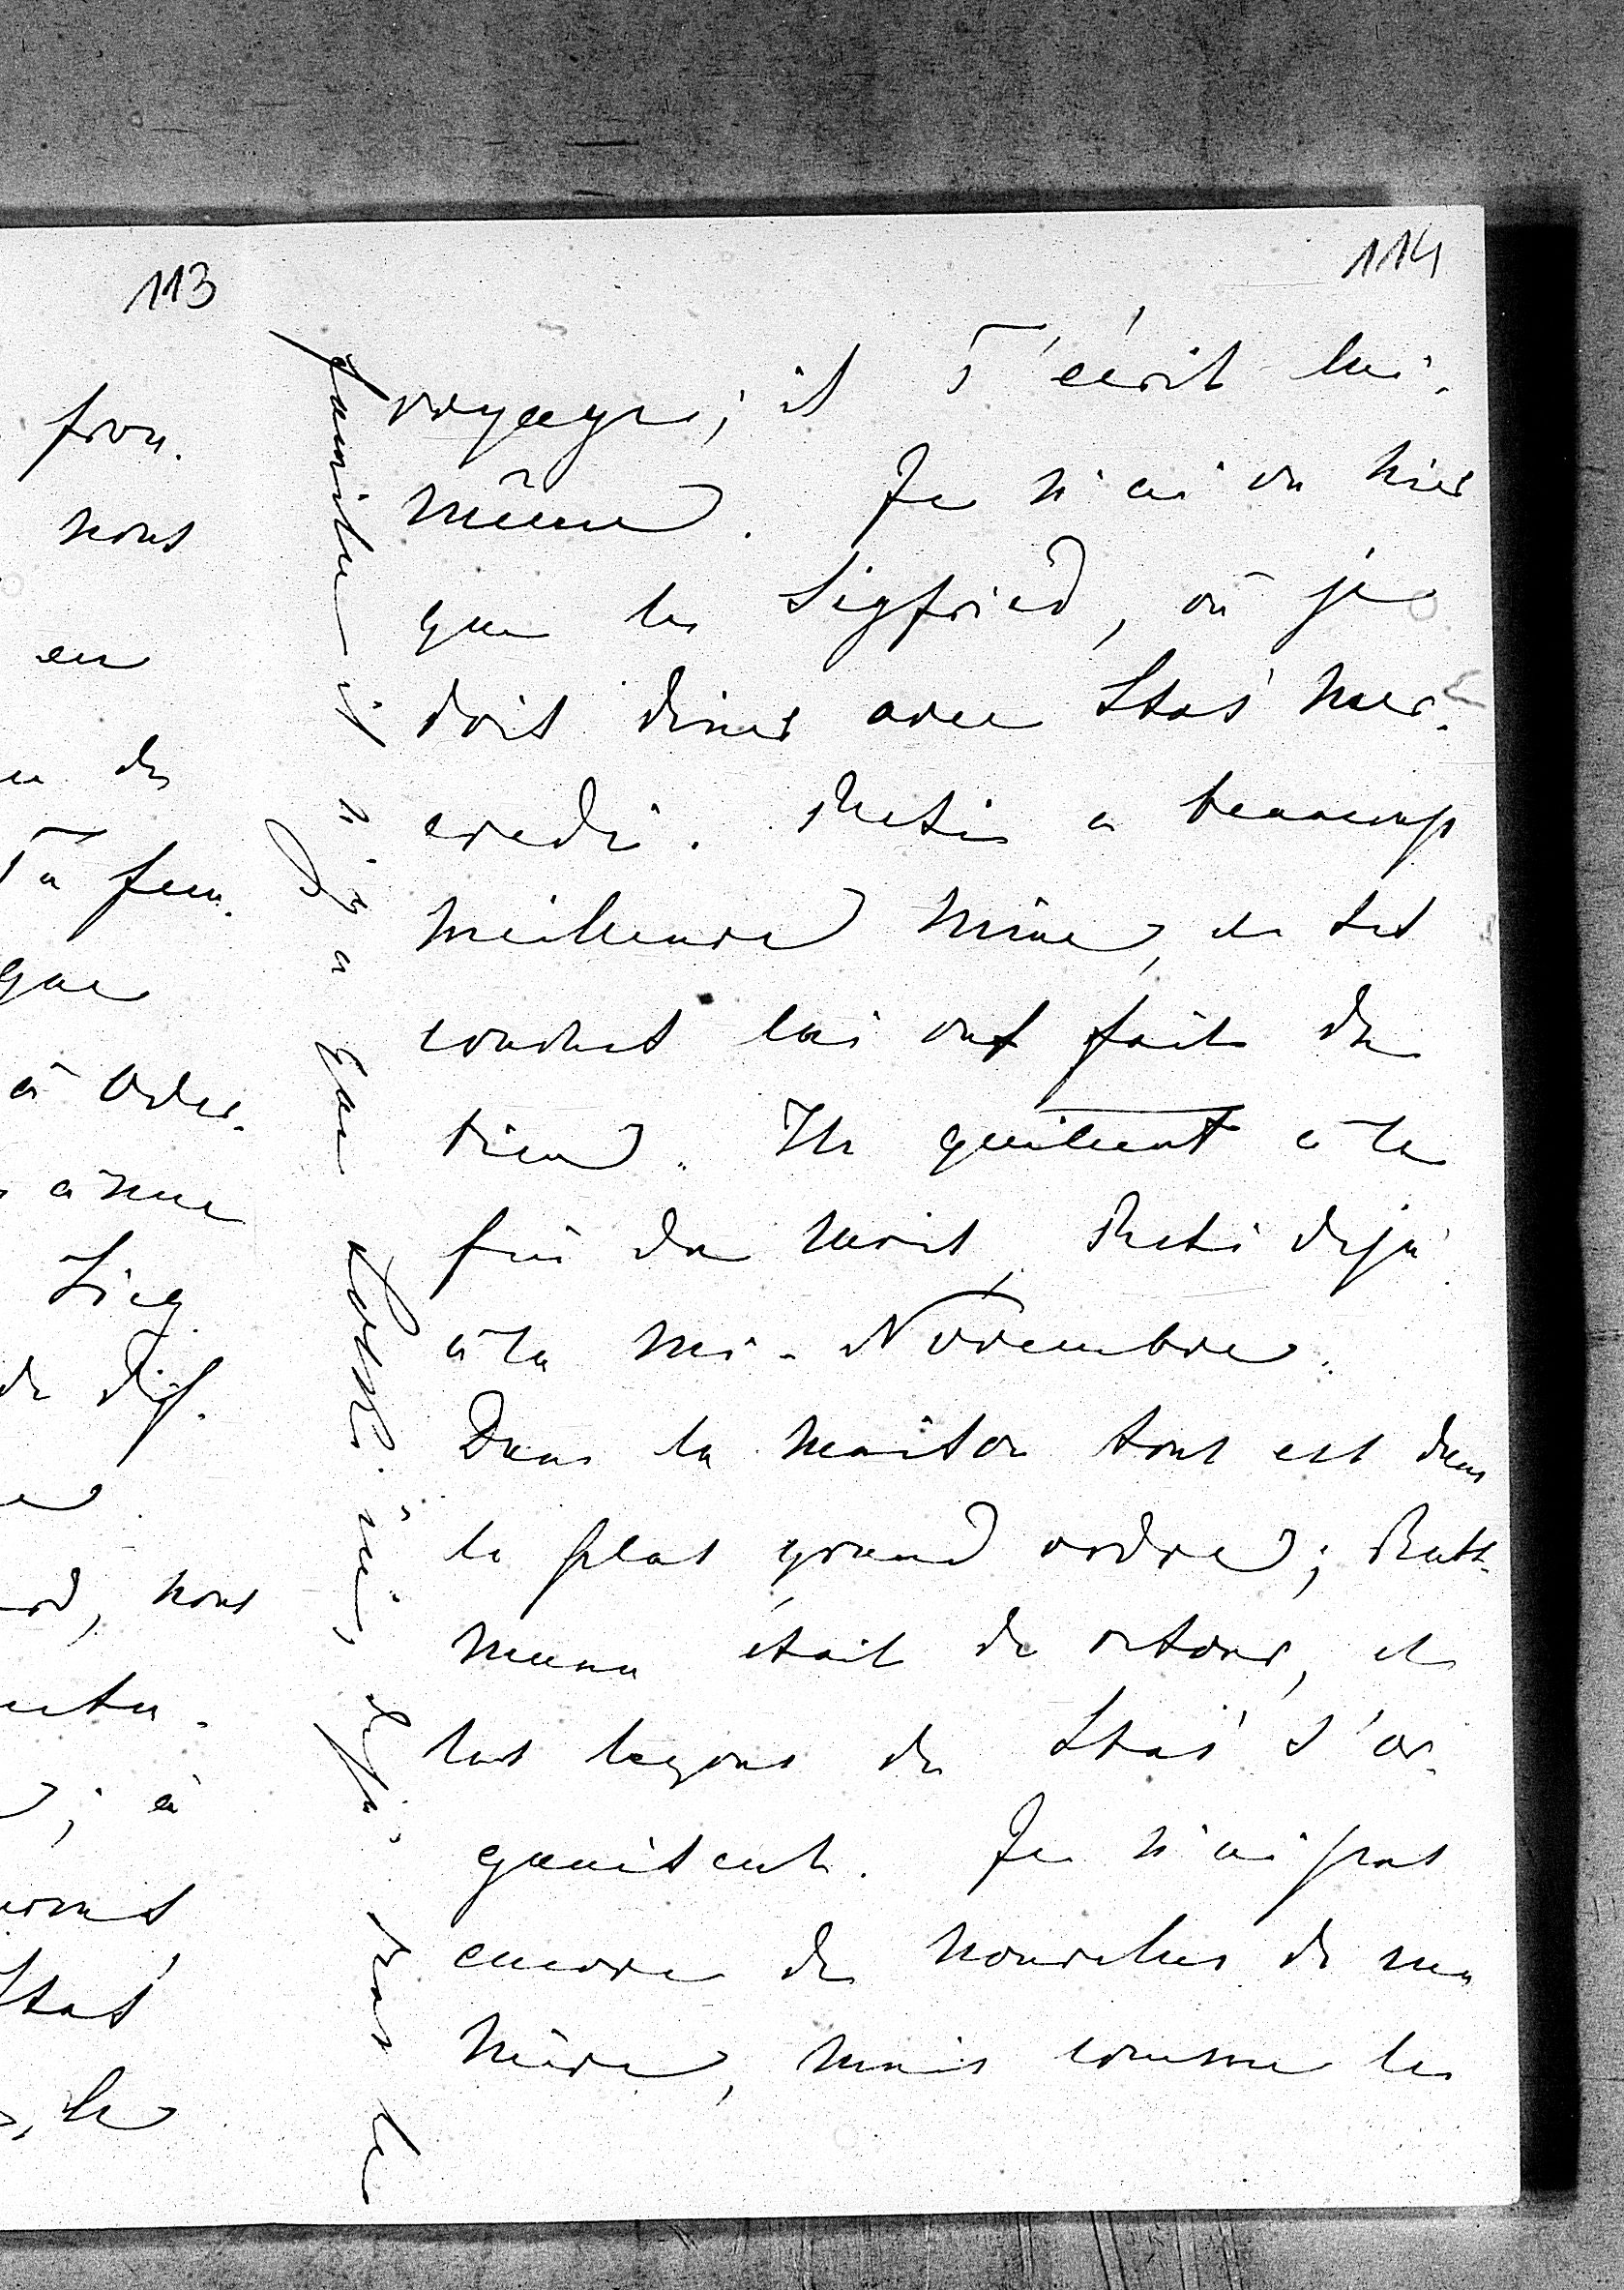 113
fron.
nous
en
de
Ta fem.
que
à Oder.
à me
Sieg
de dif.
nous
à
Stas'
le
114
voyage; il T'écrit lui-
même. Je n'ai vu hier
que les Sigfried, où je
dois diner avec Stas' mer-
credi. Retis a beaucoup
meilleure mine, et ses
couches lui ont fait du
bien. Ils quittent à la
fin du mois, Reti déjà
à la mi-Novembre.
Dans la maison tout est dans
le plus grand ordre; Butt-
mann était de retour, et
les leçons de Stas' s'or-
ganisent. Je n'ai pas
encore de nouvelles de ma
Mère, mais comme les
famille il n'y a que ici, déjà pas le